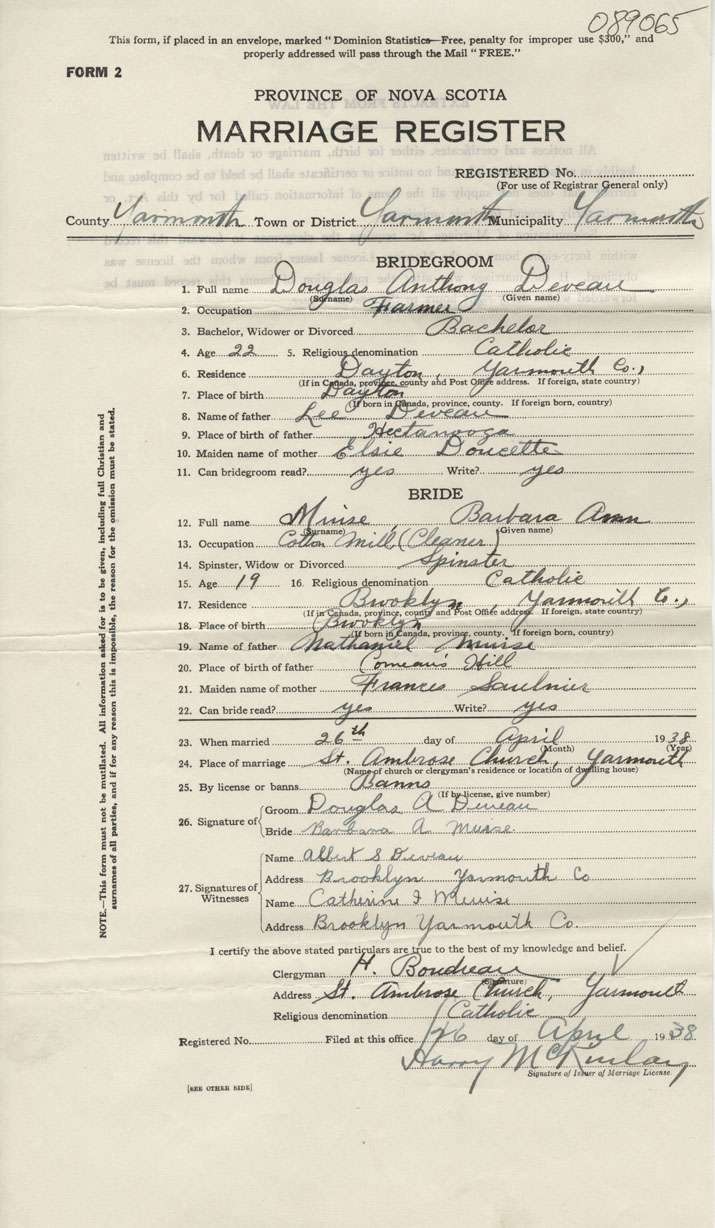 089065
This form, if placed in an envelope, marked "Dominion Statistics—Free, penalty for improper use $300," and
properly addressed will pass through the Mail "FREE."
FORM 2
PROVINCE OF NOVA SCOTIA
MARRIAGE REGISTER
REGISTERED No.
(For use of Registrar General only)
County Yarmouth Town or District Yarmouth Municipality Yarmouth
BRIDEGROOM
1. Full name Douglas Anthony Deveau
(Surname) (Given name)
2. Occupation Farmer
3. Bachelor, Widower or Divorced Bachelor
4. Age 22 5. Religious denomination Catholic
6. Residence Dayton, Yarmouth Co.,
(If in Canada, province, county and Post Office address. If foreign, state country)
7. Place of birth Dayton
(If born in Canada, province, county. If foreign born, country)
8. Name of father Lee Deveau
9. Place of birth of father Hectanooga
10. Maiden name of mother Elsie Doucette
11. Can bridegroom read? yes Write? yes
BRIDE
12. Full name Muise, Barbara Ann
(Surname) (Given name)
13. Occupation Cotton Mill (Cleaner)
14. Spinster, Widow or Divorced Spinster
15. Age 19 16. Religious denomination Catholic
17. Residence Brooklyn, Yarmouth Co.,
(If in Canada, province, county and Post Office address. If foreign, state country)
18. Place of birth Brooklyn
(If born in Canada, province, county. If foreign born, country)
19. Name of father Nathaniel Muise
20. Place of birth of father Comeau's Hill
21. Maiden name of mother Frances Saulnier
22. Can bride read? yes Write? yes
23. When married 26th day of April 1938
(Month) (Year)
24. Place of marriage St. Ambrose Church, Yarmouth
(Name of church or clergyman's residence or location of dwelling house)
25. By license or banns Banns
(If by license, give number)
26. Signature of
Groom Douglas A Deveau
Bride Barbara A Muise
27. Signatures of Witnesses
Name Albert S Deveau
Address Brooklyn Yarmouth Co
Name Catherine I Meuise
Address Brooklyn Yarmouth Co.
I certify the above stated particulars are true to the best of my knowledge and belief.
Clergyman H. Boudreau
(Signature)
Address St. Ambrose Church, Yarmouth
Religious denomination Catholic
Registered No. Filed at this office 26 day of April 1938
Harry McKinlay
Signature of Issuer of Marriage License
[SEE OTHER SIDE]
NOTE.—This form must not be mutilated. All information asked for is to be given, including full Christian and
surnames of all parties, and if for any reason this is impossible, the reason for the omission must be stated.